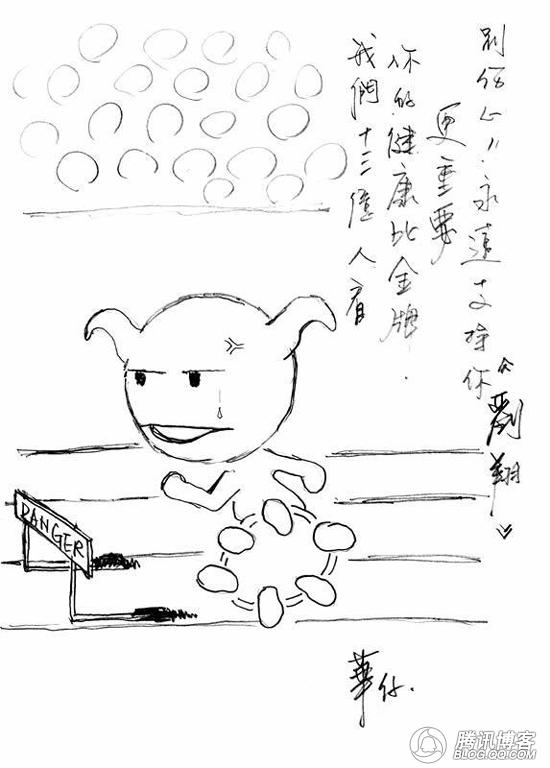 我們十三億人看
你的健康比金牌.
更重要
別伤心!!永遠支持你
劉翔
DANGER
華仔.
腾讯博客
BLOG.QQ.COM